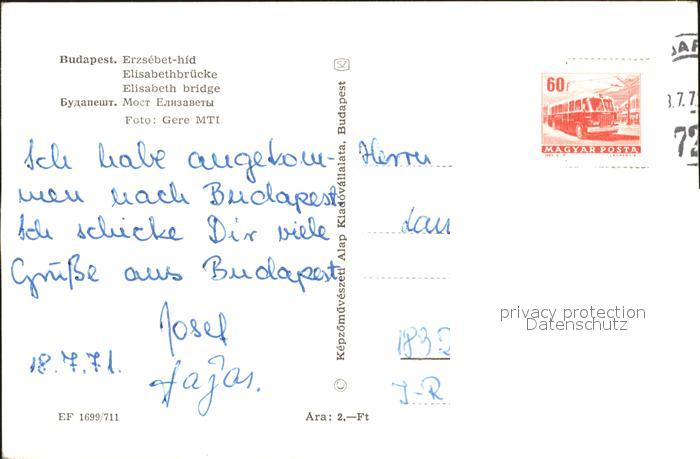 Budapest. Erzsébet-híd
Elisabethbrücke
Elisabeth bridge
Будапешт. Мост Елизаветы
Foto: Gere MTI
Ich habe angekom-
men nach Budapest.
Ich schicke Dir viele
Grüße aus Budapest
Josef
18.7.71.
EF 1699/711
Ára: 2,—Ft
© Képzőművészeti Alap Kiadóvállalata, Budapest
Herrn
Lau
183
J-R
60f
MAGYAR POSTA
.7.7
72
privacy protection
Datenschutz